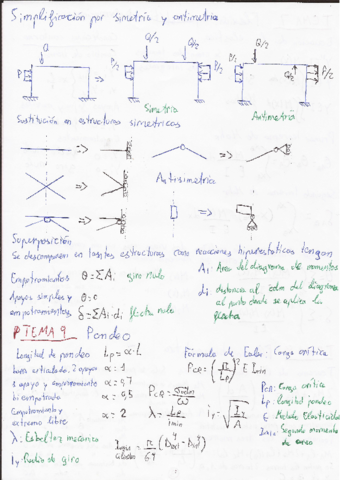 Simplificación por simetría y antimetría
Q Q/2 Q/2 Q/2
P P/2 P/2 P/2 Q/2 P/2
=> =
Simetría Antimetría
Sustitución en estructuras simétricas
=> =>
=> Antisimetría
=> =>
Superposición
Se descomponen en tantas estructuras como reacciones hiperestáticas tengan
Empotramientos θ=ΣAi giro nulo
Ai: Área del diagrama de momentos
Apoyos simples y θ=0
empotramientos δ=ΣAi·di flecha nula
di: distancia al cdm del diagrama
al punto donde se aplica la
flecha
TEMA 9 Pandeo
Longitud de pandeo Lp=α·L
Fórmula de Euler: Carga crítica
barra articulada, 2 apoyos α=1
Pcr=(π/Lp)² E Imin
1 apoyo y empotramiento α=0,7
Pcr: Carga crítica
biempotrado α=0,5
Lp: longitud pandeo
Empotramiento y α=2
extremo libre
λ=Lp/imin
E: Módulo Elasticidad
Imin: Segundo momento
de área
λ: Esbeltez mecánica
iy: Radio de giro